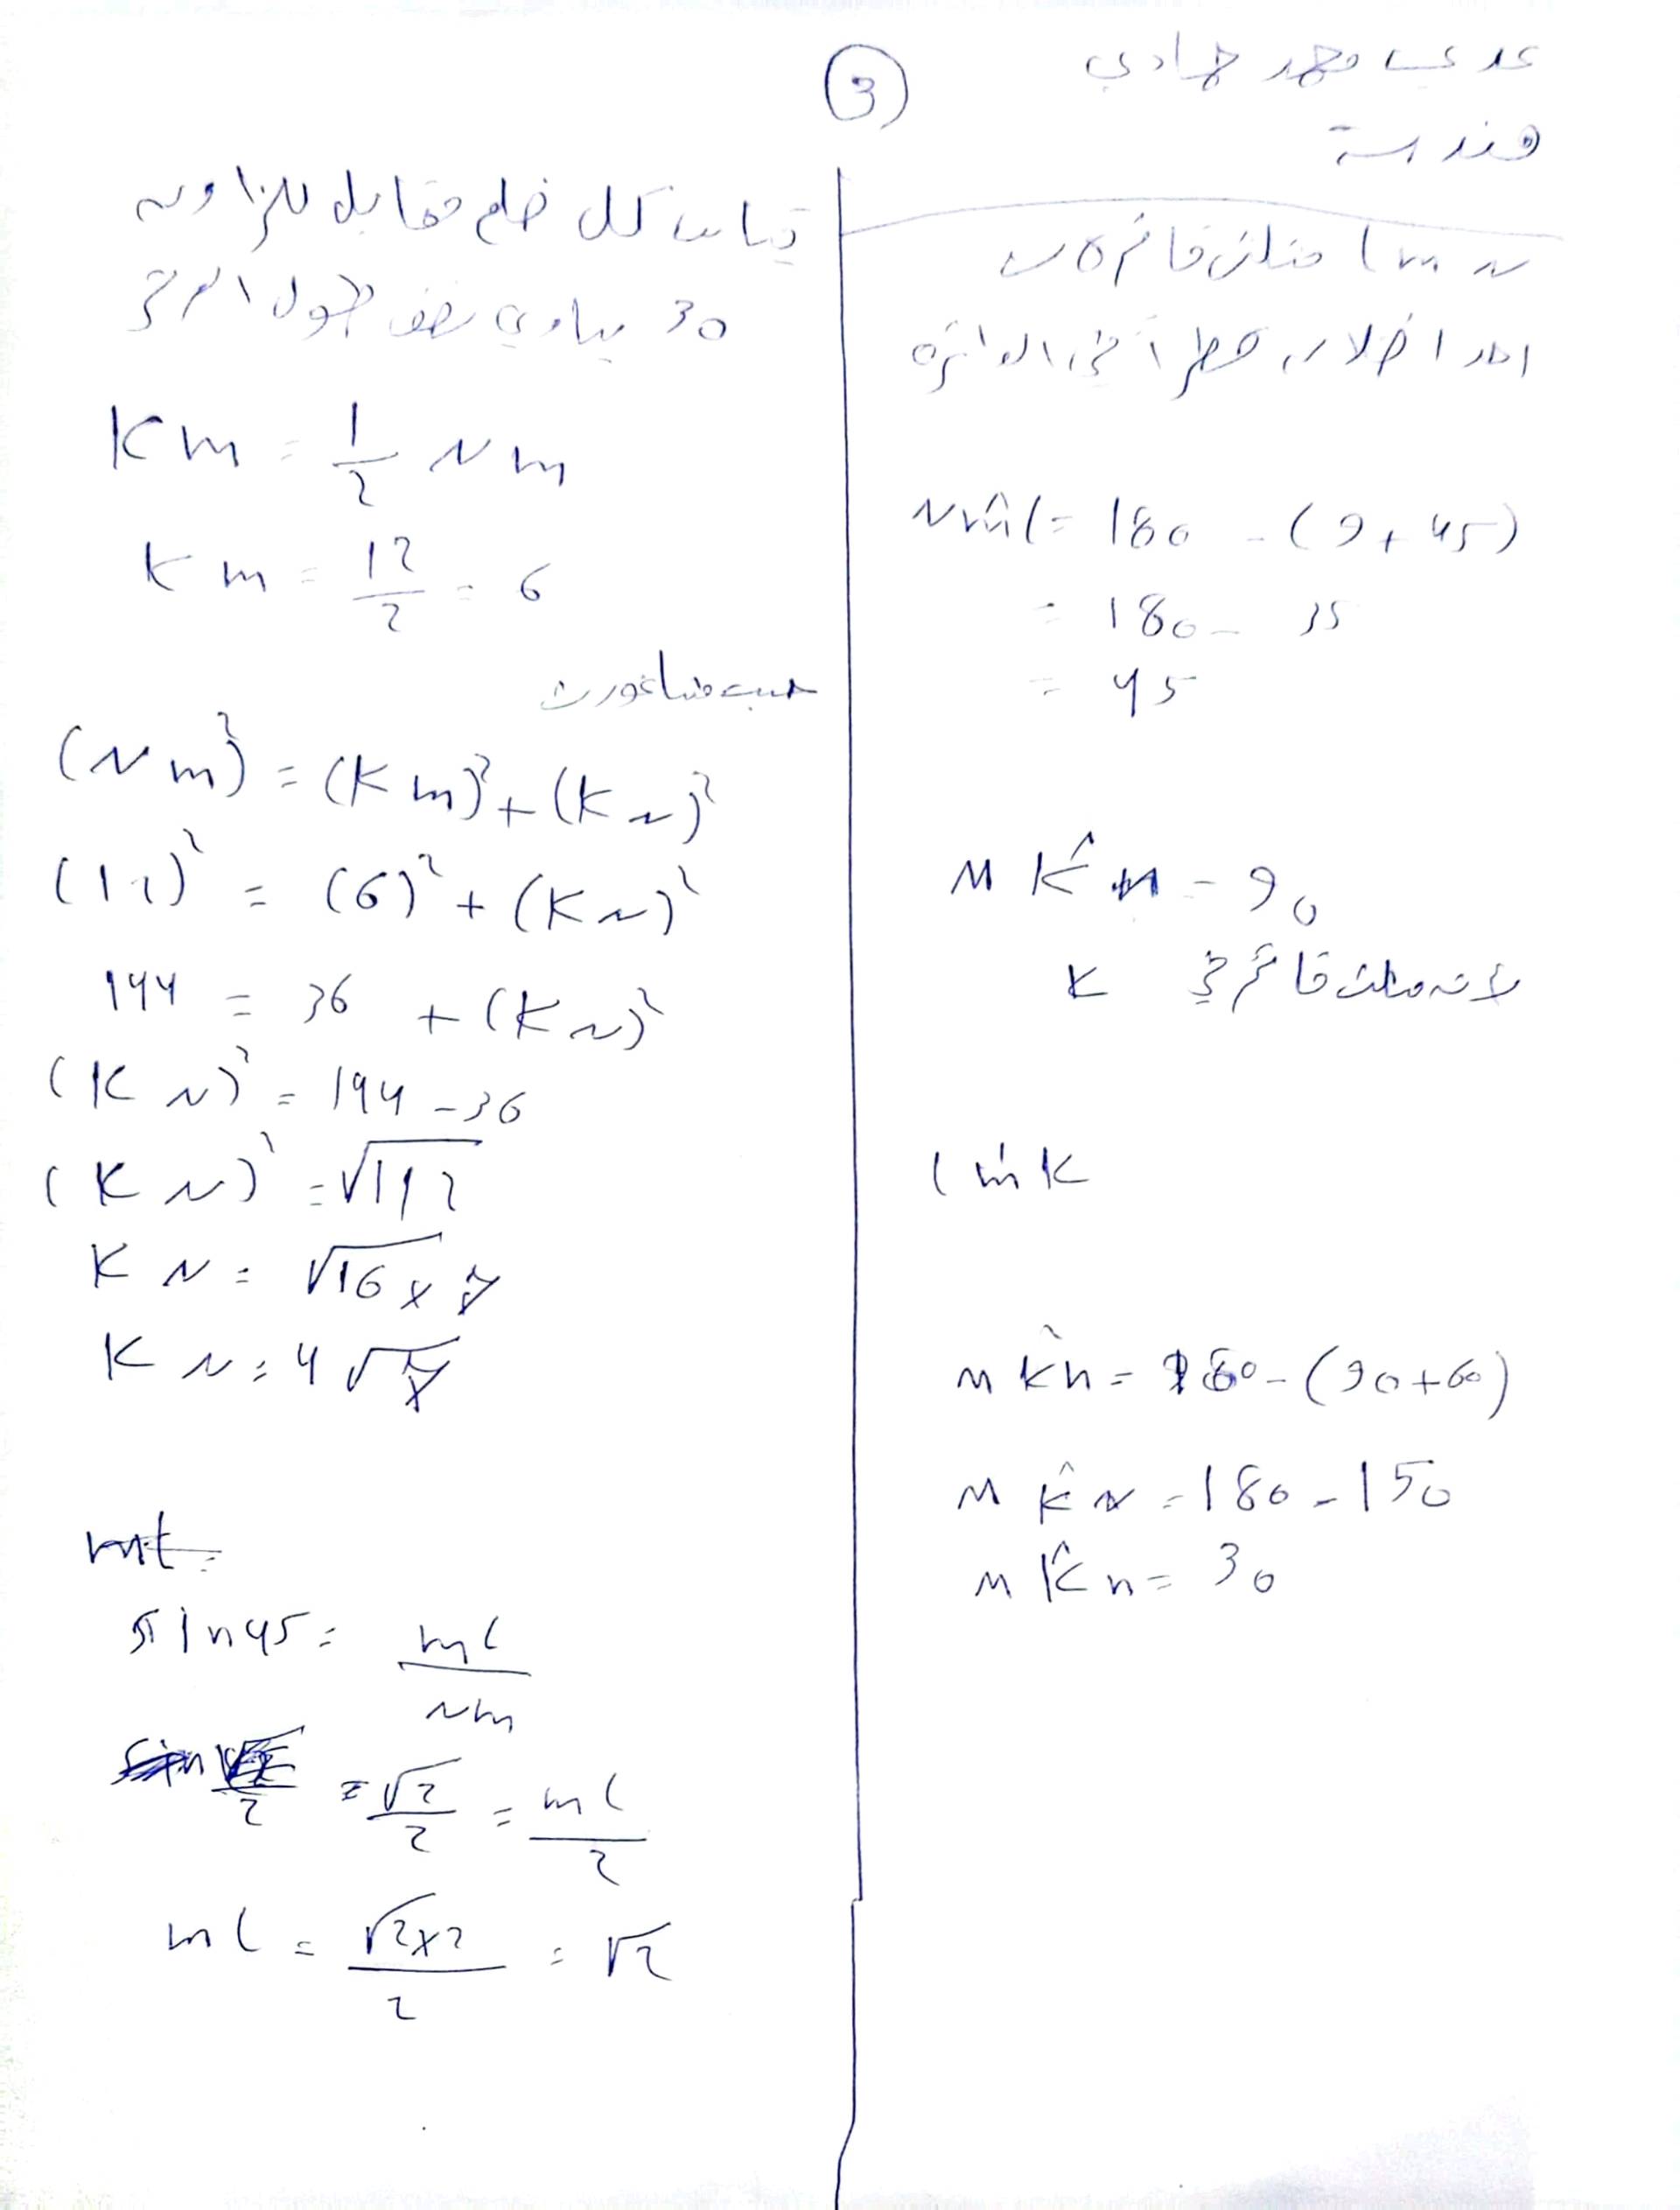 3
هندسة
N m l مثلث قائم لان
احد اضلاعه قطر في الدائرة
N m̂ l = 180 - (9 + 45)
= 180 - 35
= 45
M K̂ n = 90
لانه مثلث قائم في K
l m̂ K
m k̂ n = 180 - (90 + 60)
M K̂ N = 180 - 150
M K̂ n = 30
قياس كل ضلع مقابل للزاوية
30 يساوي نصف طول الوتر
Km = 1/2 Nm
Km = 12/2 = 6
حسب فيثاغورث
(Nm)² = (Km)² + (KN)²
(12)² = (6)² + (KN)²
144 = 36 + (KN)²
(KN)² = 144 - 36
(KN)² = √112
KN = √16 × 7
KN = 4√7
sin 45 = ml/Nm
= √2/2 = ml/2
ml = √2×2/2 = √2